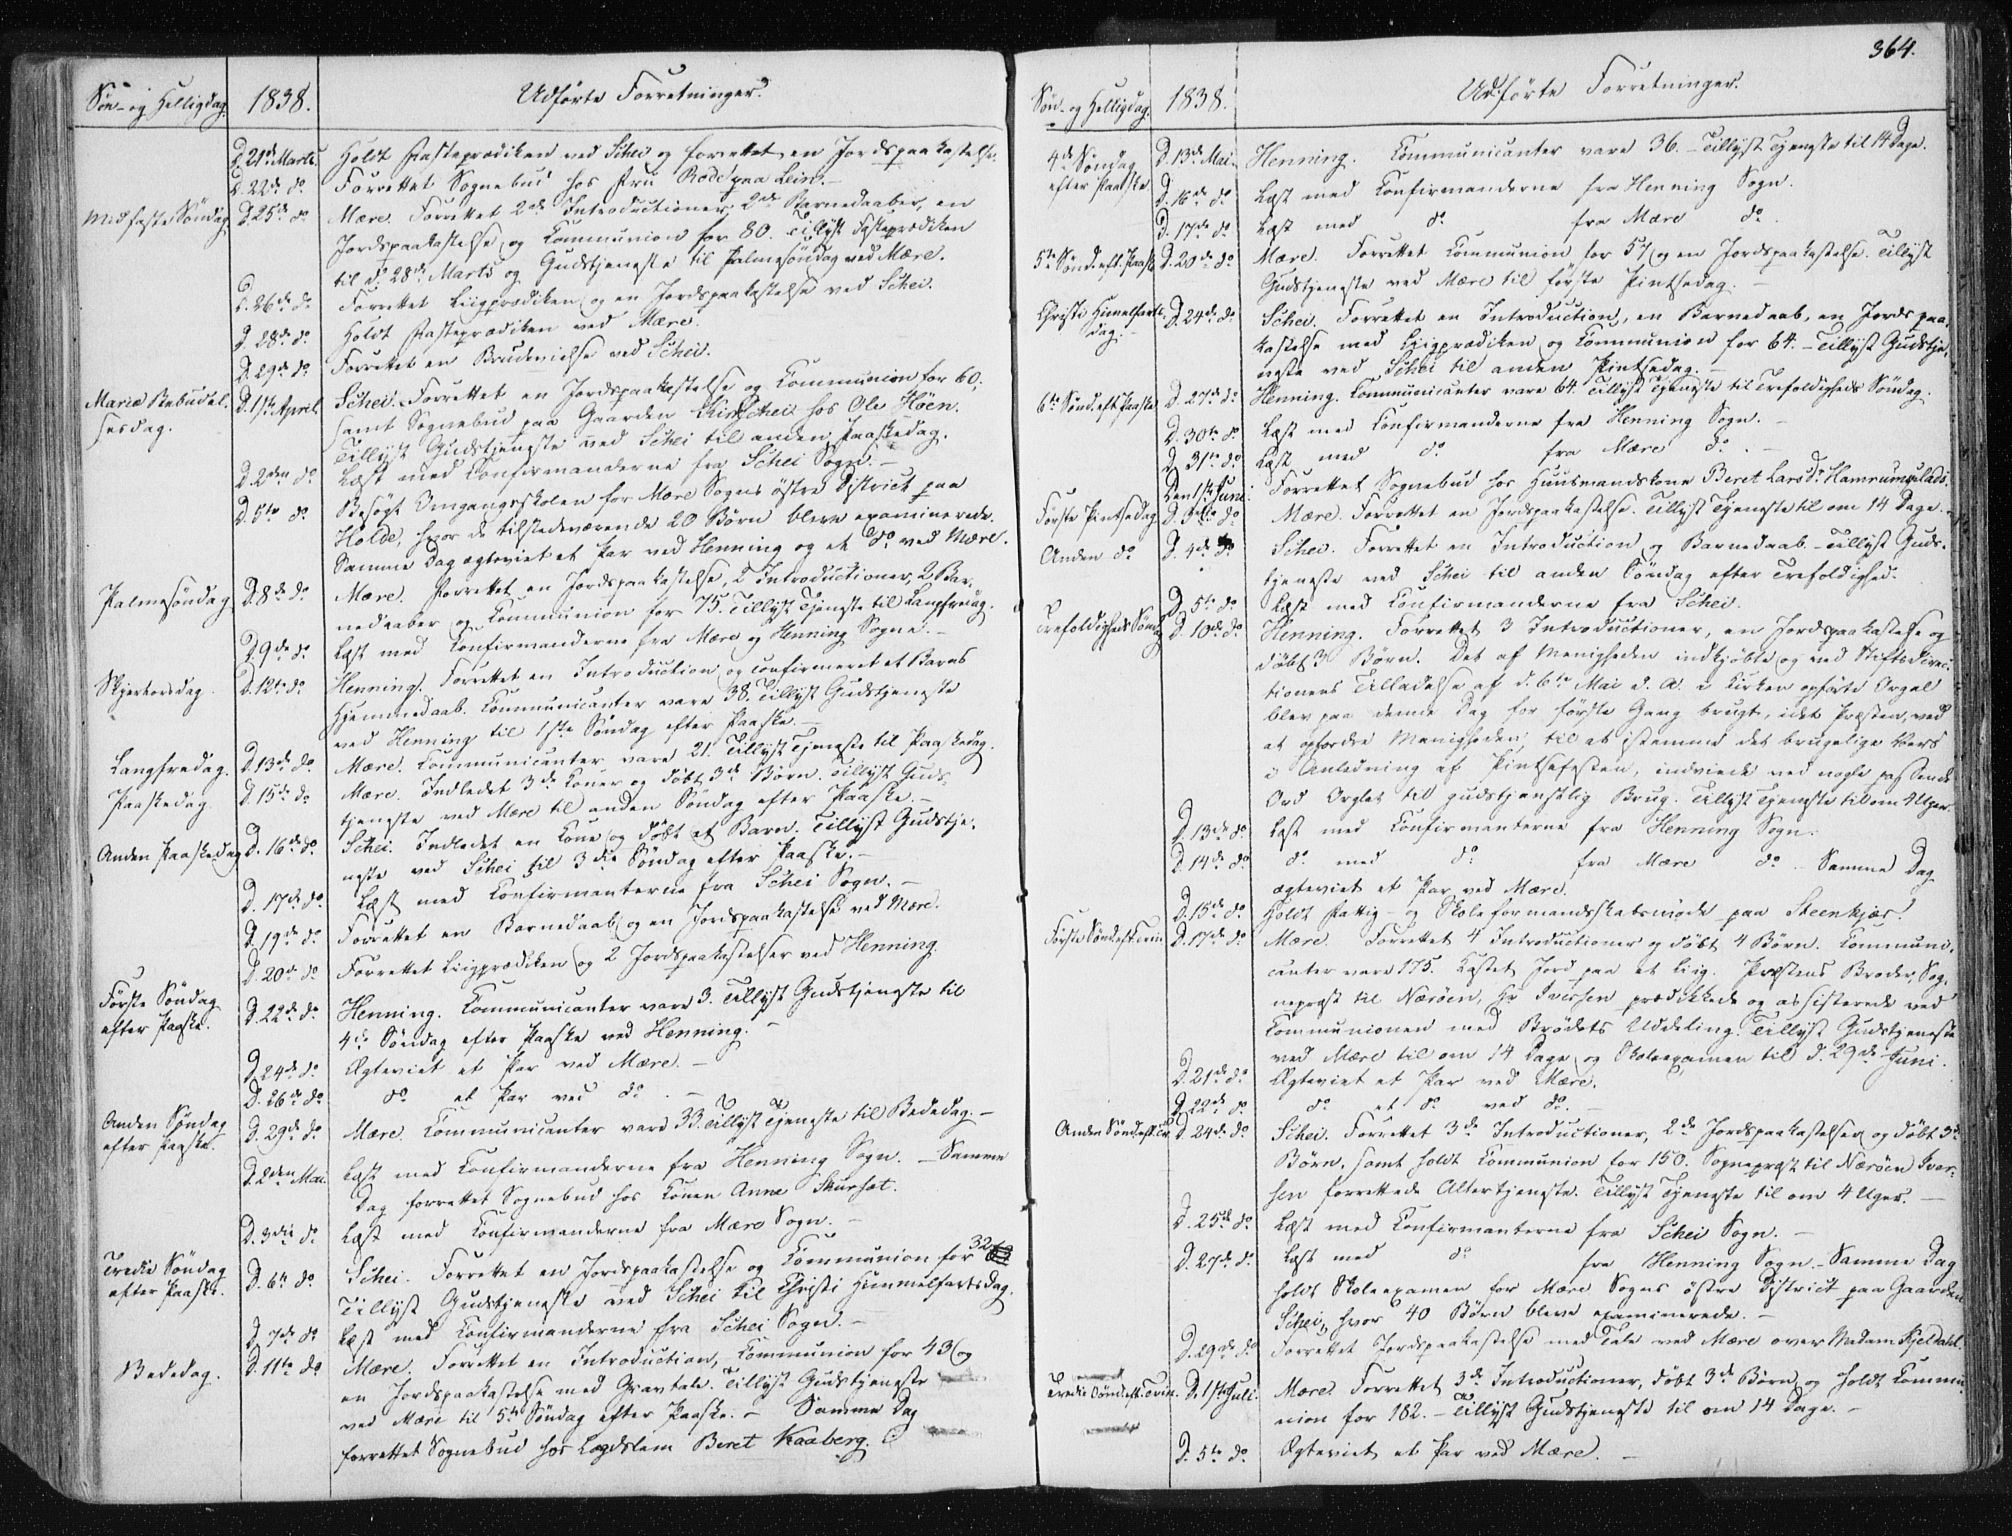 Søn- og Helligdag. 1838. Udførte Forretninger.
D. 21de Marts. Holdt Fasteprædiken ved Schei og forrettet en Jordspaakastelse.
D. 22de do Forrettet Sognebud hos Fru Rode paa Lein. –
Midfaste Søndag. D. 25de do Mære. Forrettet 2de Introductioner, 2de Barnedaaber, en
Jordspaakastelse og Communion for 80. Tillyst Fasteprædiken
til d. 28de Marts og Gudstjeneste til Palmesøndag ved Mære.
D. 26de do Forrettet Liigprædiken og en Jordspaakastelse ved Schei.
D. 28de do Holdt Fasteprædiken ved Mære.
D. 29de do Forrettet en Brudevielse ved Schei.
Mariæ Bebudel- D. 1ste April. Schei. Forrettet en Jordspaakastelse og Communion for 60.
sesdag. samt Sognebud paa Gaarden Kirkschei hos Ole Høen.
Tillyst Gudstjeneste ved Schei til anden Paaskedag.
D. 2den do Læst med Confirmanderne fra Schei Sogn. –
D. 5te do Besøgt Omgangsskolen for Mære Sogns østre District paa
Holde, hvor de tilstedeværende 20 Børn bleve examinerede.
Samme Dag ægteviet et Par ved Henning og et do ved Mære.
Palmesøndag D. 8de do Mære. Forrettet en Jordspaakastelse, 2 Introductioner, 2 Bar-
nedaaber og Communion for 75. Tillyst Tjeneste til Langfredag.
D. 9de do Læst med Confirmanderne fra Mære og Henning Sogne. –
Skjertorsdag. D. 12te do Henning. Forrettet en Introduction og confirmeret et Barns
Hjemmedaab. Communicanter vare 38. Tillyst Gudstjeneste
ved Henning til 1ste Søndag efter Paaske. –
Langfredag. D. 13de do Mære. Communicanter vare 21. Tillyst Tjeneste til Paaskedag.
Paaskedag. D. 15de do Mære. Indledet 3de Koner og døbt 3de Børn. Tillyst Guds-
tjeneste ved Mære til anden Søndag efter Paaske. –
Anden Paaskedag D. 16de do Schei. Indledet en Kone og døbt et Barn. Tillyst Gudstje-
neste ved Schei til 3die Søndag efter Paaske. –
D. 17de do Læst med Confirmanterne fra Schei Sogn. –
D. 19de do Forrettet en Barnedaab og en Jordspaakastelse ved Mære.
D. 20de do Forrettet Liigprædiken og 2 Jordspaakastelser ved Henning.
Første Søndag D. 22de do Henning. Communicanter vare 3. Tillyst Gudstjeneste til
efter Paaske. 4de Søndag efter Paaske ved Henning. –
D. 24de do Ægteviet et Par ved Mære. –
D. 26de do do et Par ved do. –
Anden Søndag D. 29de do Mære. Communicanter vare 33. Tillyst Tjeneste til Bededag. –
efter Paaske.
D. 2den Mai. Læst med Confirmanderne fra Henning Sogn. – Samme
Dag forrettet Sognebud hos Konen Anne Skursæt.
D. 3die do Læst med Confirmanderne fra Mære Sogn. –
Tredie Søndag D. 6te do Schei. Forrettet en Jordspaakastelse og Communion for 32
efter Paaske. Tillyst Gudstjeneste ved Schei til Christi Himmelfartsdag.
D. 7de do Læst med Confirmanderne fra Schei Sogn. –
Bededag. D. 11te do Mære. Forrettet en Introduction, Communion for 43 og
en Jordspaakastelse med Gravtale. Tillyst Gudstjeneste
ved Mære til 5te Søndag efter Paaske. – Samme Dag
forrettet Sognebud hos Lægdslem Beret Kaaberg.
364.
Søn- og Helligdag. 1838. Udførte Forretninger.
4de Søndag D. 13de Mai. Henning. Communicanter vare 36. – Tillyst Tjeneste til 14 Dage.
efter Paaske D. 16de do Læst med Confirmanderne fra Henning Sogn.
D. 17de do Læst med do fra Mære do.
5te Sønd. eft. Paask. D. 20de do Mære. Forrettet Communion for 57 og en Jordspaakastelse. Tillyst
Gudstjeneste ved Mære til første Pintsedag. –
Christi Himelfarts- D. 24de do Schei. Forrettet en Introduction, en Barnedaab, en Jordspaa-
dag. kastelse med Liigprædiken og Communion for 64. – Tillyst Gudstje-
neste ved Schei til anden Pintsedag. –
6te Sønd. eft. Paaske D. 27de do Henning. Communicanter vare 64. Tillyst Tjeneste til Trefoldigheds Søndag.
D. 30te do Læst med Confirmanderne fra Henning Sogn. –
D. 31te do Læst med do fra Mære do. –
Den 1ste Juni. Forrettet Sognebud hos Huusmandskone Beret Larsdr Hamrumplads.
Første Pintsedag. D. 3die do Mære. Forrettet en Jordspaakastelse. Tillyst Tjeneste til om 14 Dage. –
Anden do D. 4de do Schei. Forrettet en Introduction og Barnedaab. – Tillyst Guds-
tjeneste ved Schei til anden Søndag efter Trefoldighed.
D. 5te do Læst med Confirmanderne fra Schei.
Trefoldigheds Sønd. D. 10de do Henning. Forrettet 3 Introductioner, en Jordspaakastelse og
døbt 3 Børn. Det af Menigheden indkjøbte og ved Stiftsdirec-
tionens Tilladelse af d. 6te Mai d. A. i Kirken opførte Orgel
blev paa denne Dag for første Gang brugt, idet Præsten, ved
at opfordre Menigheden til at istemme det brugelige Vers
i Anledning af Pintsefesten, indviede ved nogle passende
Ord Orglet til gudstjenstlig Brug. Tillyst Tjeneste til om 4 Uger.
D. 13de do Læst med Confirmanterne fra Henning Sogn.
D. 14de do do med do fra Mære do. Samme Dag
ægteviet et Par ved Mære.
D. 15de do Holdt Fattig- og Skoleformandsskabsmøde paa Steenkjær.
Første Sønd. eft. Trin. D. 17de do Mære. Forrettet 4 Introductioner og døbt 4 Børn. Communi-
canter vare 175. Kastet Jord paa et Liig. Præstens Broder, Sog-
nepræst til Nærøen, Hr Iversen prædikkede og assisterede ved
Communionen med Brødets Uddeling. Tillyst Gudstjeneste
ved Mære til om 14 Dage og Skoleexamen til d. 29de Juni.
D. 21de do Ægteviet et Par ved Mære.
D. 22de do do et do ved do. –
Anden Sønd. eft. Tr. D. 24de do Schei. Forrettet 3de Introductioner, 2de Jordspaakastelser og døbt 3de
Børn, samt holdt Communion for 150. Sognepræst til Nærøen Iver-
sen forrettede Altertjeneste. Tillyst Tjeneste til om 4 Uger. –
D. 25de do Læst med Confirmanterne fra Schei Sogn. –
D. 27de do Læst med do fra Henning Sogn – Samme Dag
holdt Skoleexamen for Mære Sogns østre District paa Gaarden
Schei, hvor 40 Børn bleve examinerede. –
D. 29de do Forrettet Jordspaakastelse med Tale ved Mære over Madam Kjeldahl.
Tredie Sønd. eft. Trin. D. 1ste Juli. Mære. Forrettet 3de Introductioner, døbt 3de Børn og holdt Commu-
nion for 182. – Tillyst Gudstjeneste til om 14 Dage. –
D. 5te do Ægteviet et Par ved Mære. –